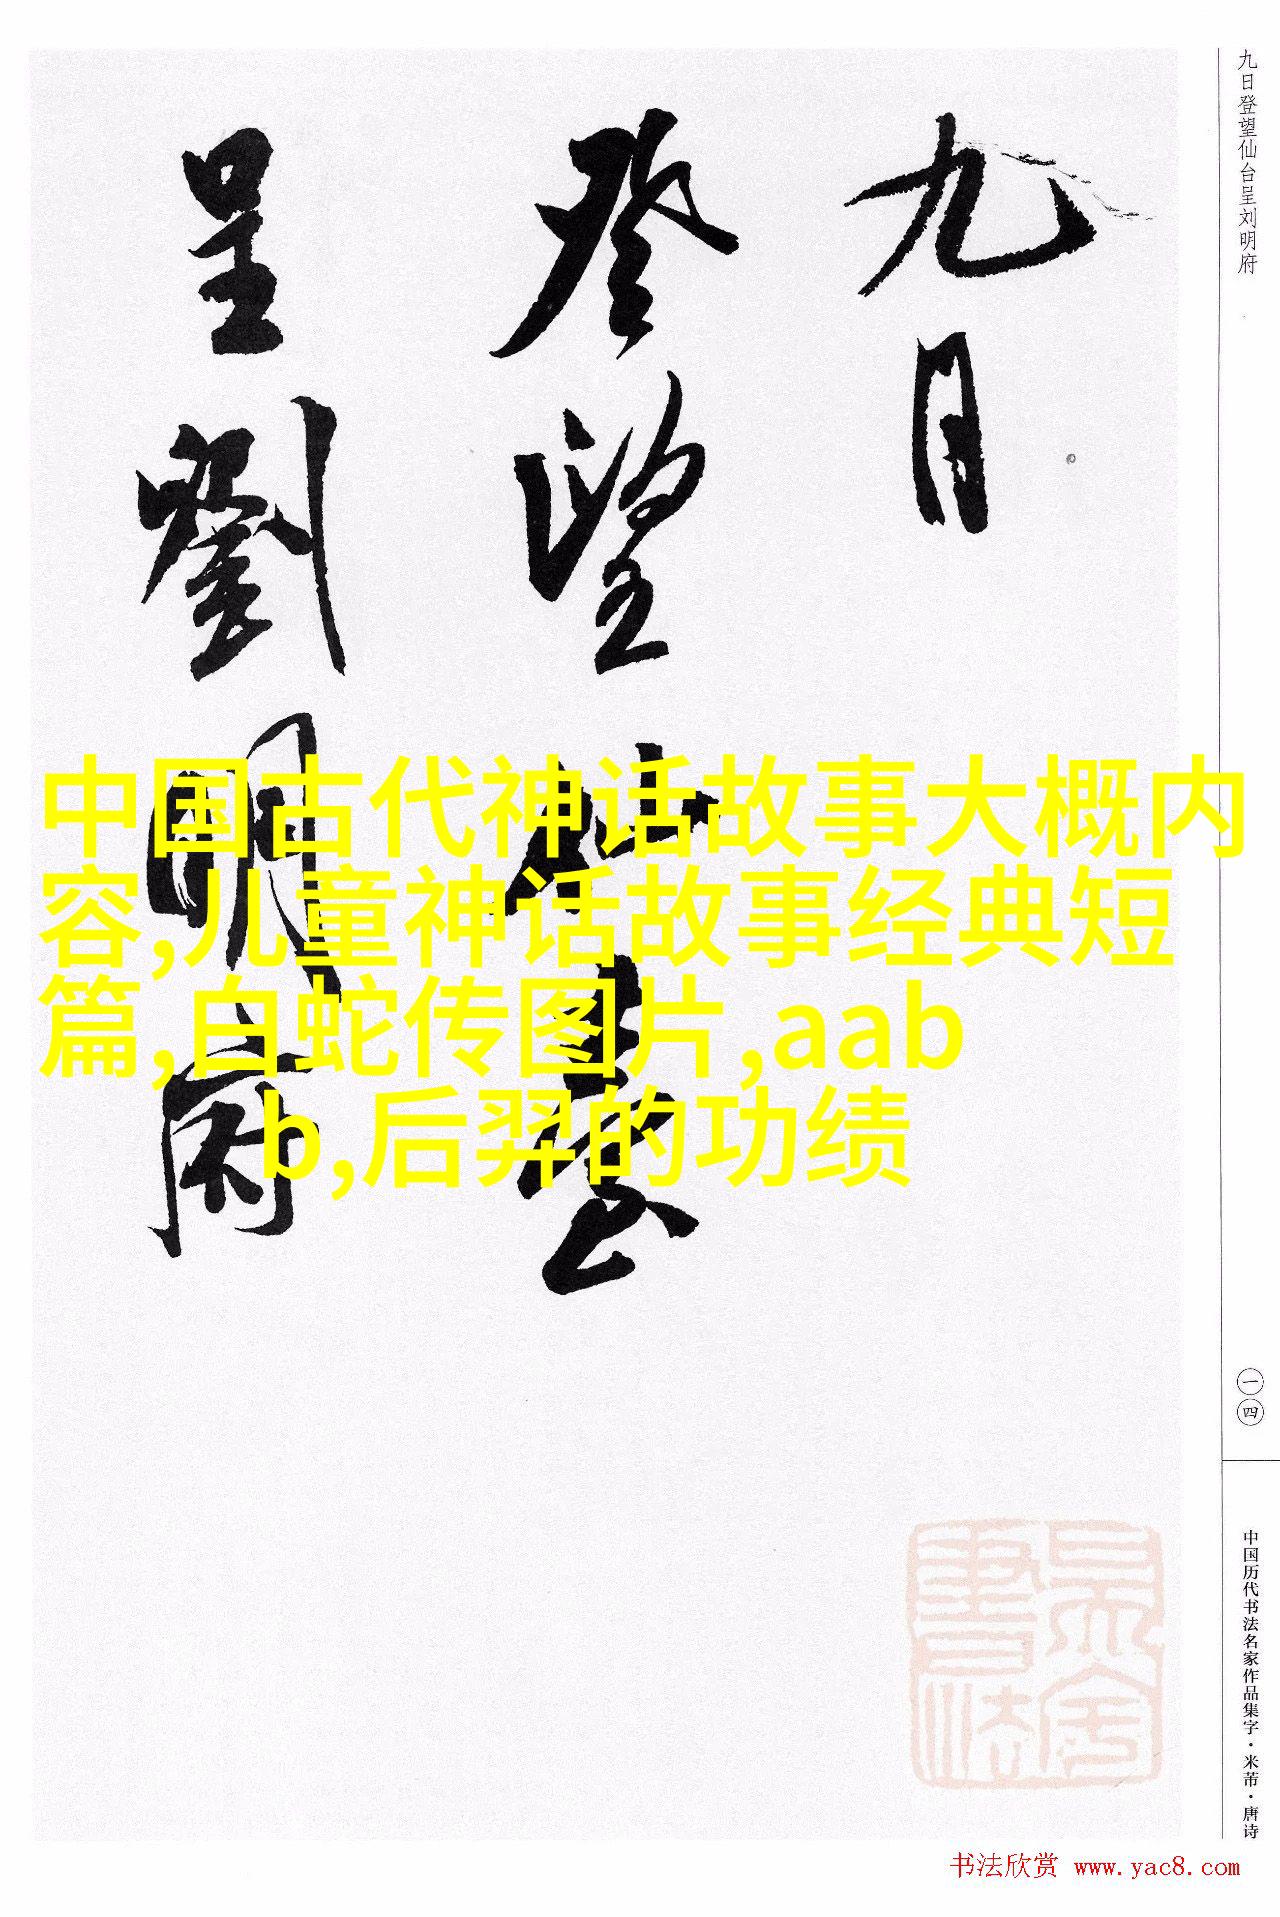 九日
登望仙臺
呈劉明府
九日登望仙台呈刘明府
中国古代神话故事大概内
容,儿童神话故事经典短
篇,白蛇传图片,aab
b,后羿的功绩
一四
中国历代书法名家作品集字·米芾·唐诗
书法欣赏 www.yac8.com